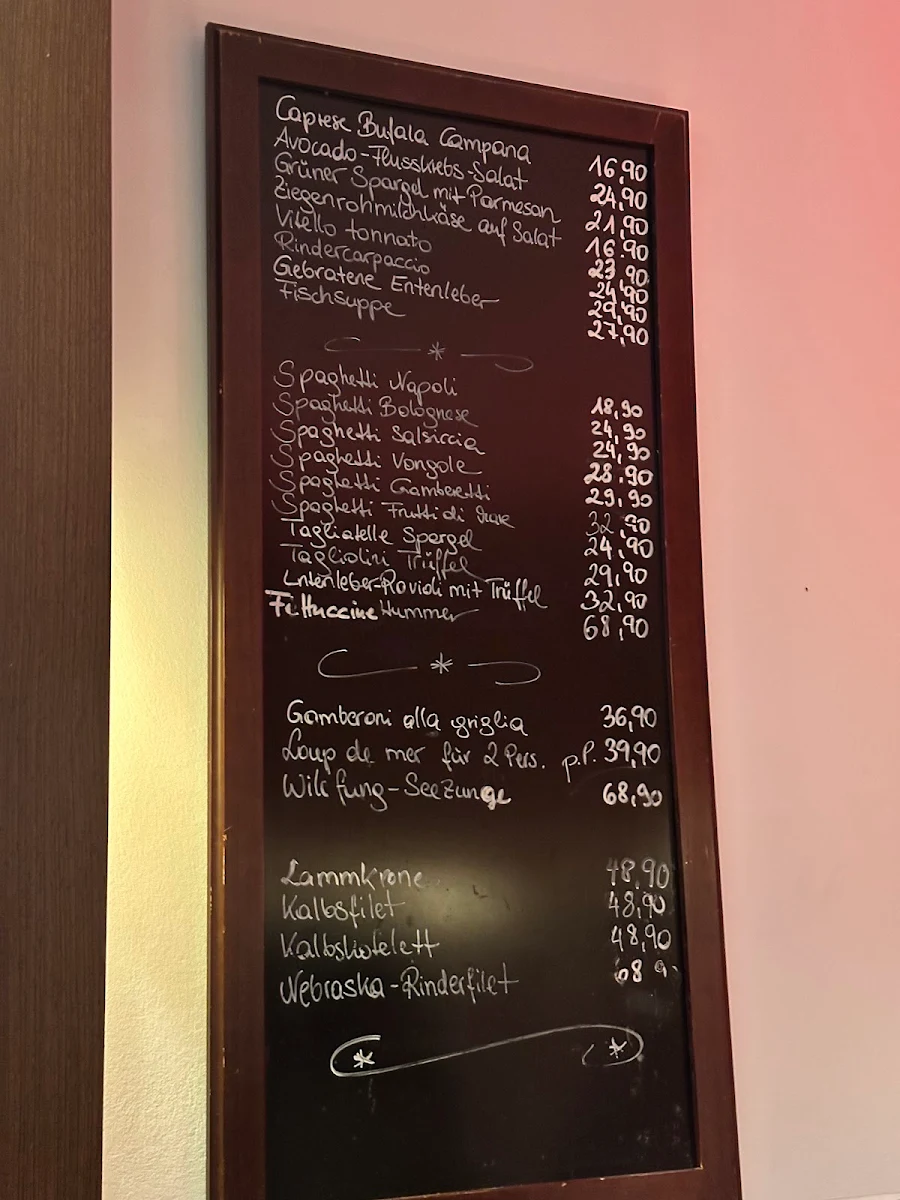 Caprese Bufala Campana 16,90
Avocado-Flusskrebs-Salat 24,90
Grüner Spargel mit Parmesan 21,90
Ziegenrohmilchkäse auf Salat 16.90
Vitello tonnato 23,90
Rindercarpaccio 24,90
Gebratene Entenleber 29,90
Fischsuppe 27,90
Spaghetti Napoli 18,90
Spaghetti Bolognese 24,90
Spaghetti Salsiccia 24,90
Spaghetti Vongole 28.90
Spaghetti Gamberetti 29,90
Spaghetti Frutti di Mare 32,90
Tagliatelle Spargel 24,90
Tagliolini Trüffel 29,90
Entenleber-Ravioli mit Trüffel 32,90
Fettuccine Hummer 68,90
Gamberoni alla griglia 36,90
Loup de mer für 2 Pers. p.P. 39,90
Wildfang-Seezunge 68,90
Lammkrone 48,90
Kalbsfilet 48,90
Kalbskotelett 48,90
Nebraska-Rinderfilet